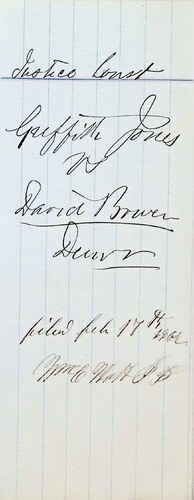 Justice Court
Griffith Jones
vs
David Bowen
filed feb 17th
Wm C Watt J P